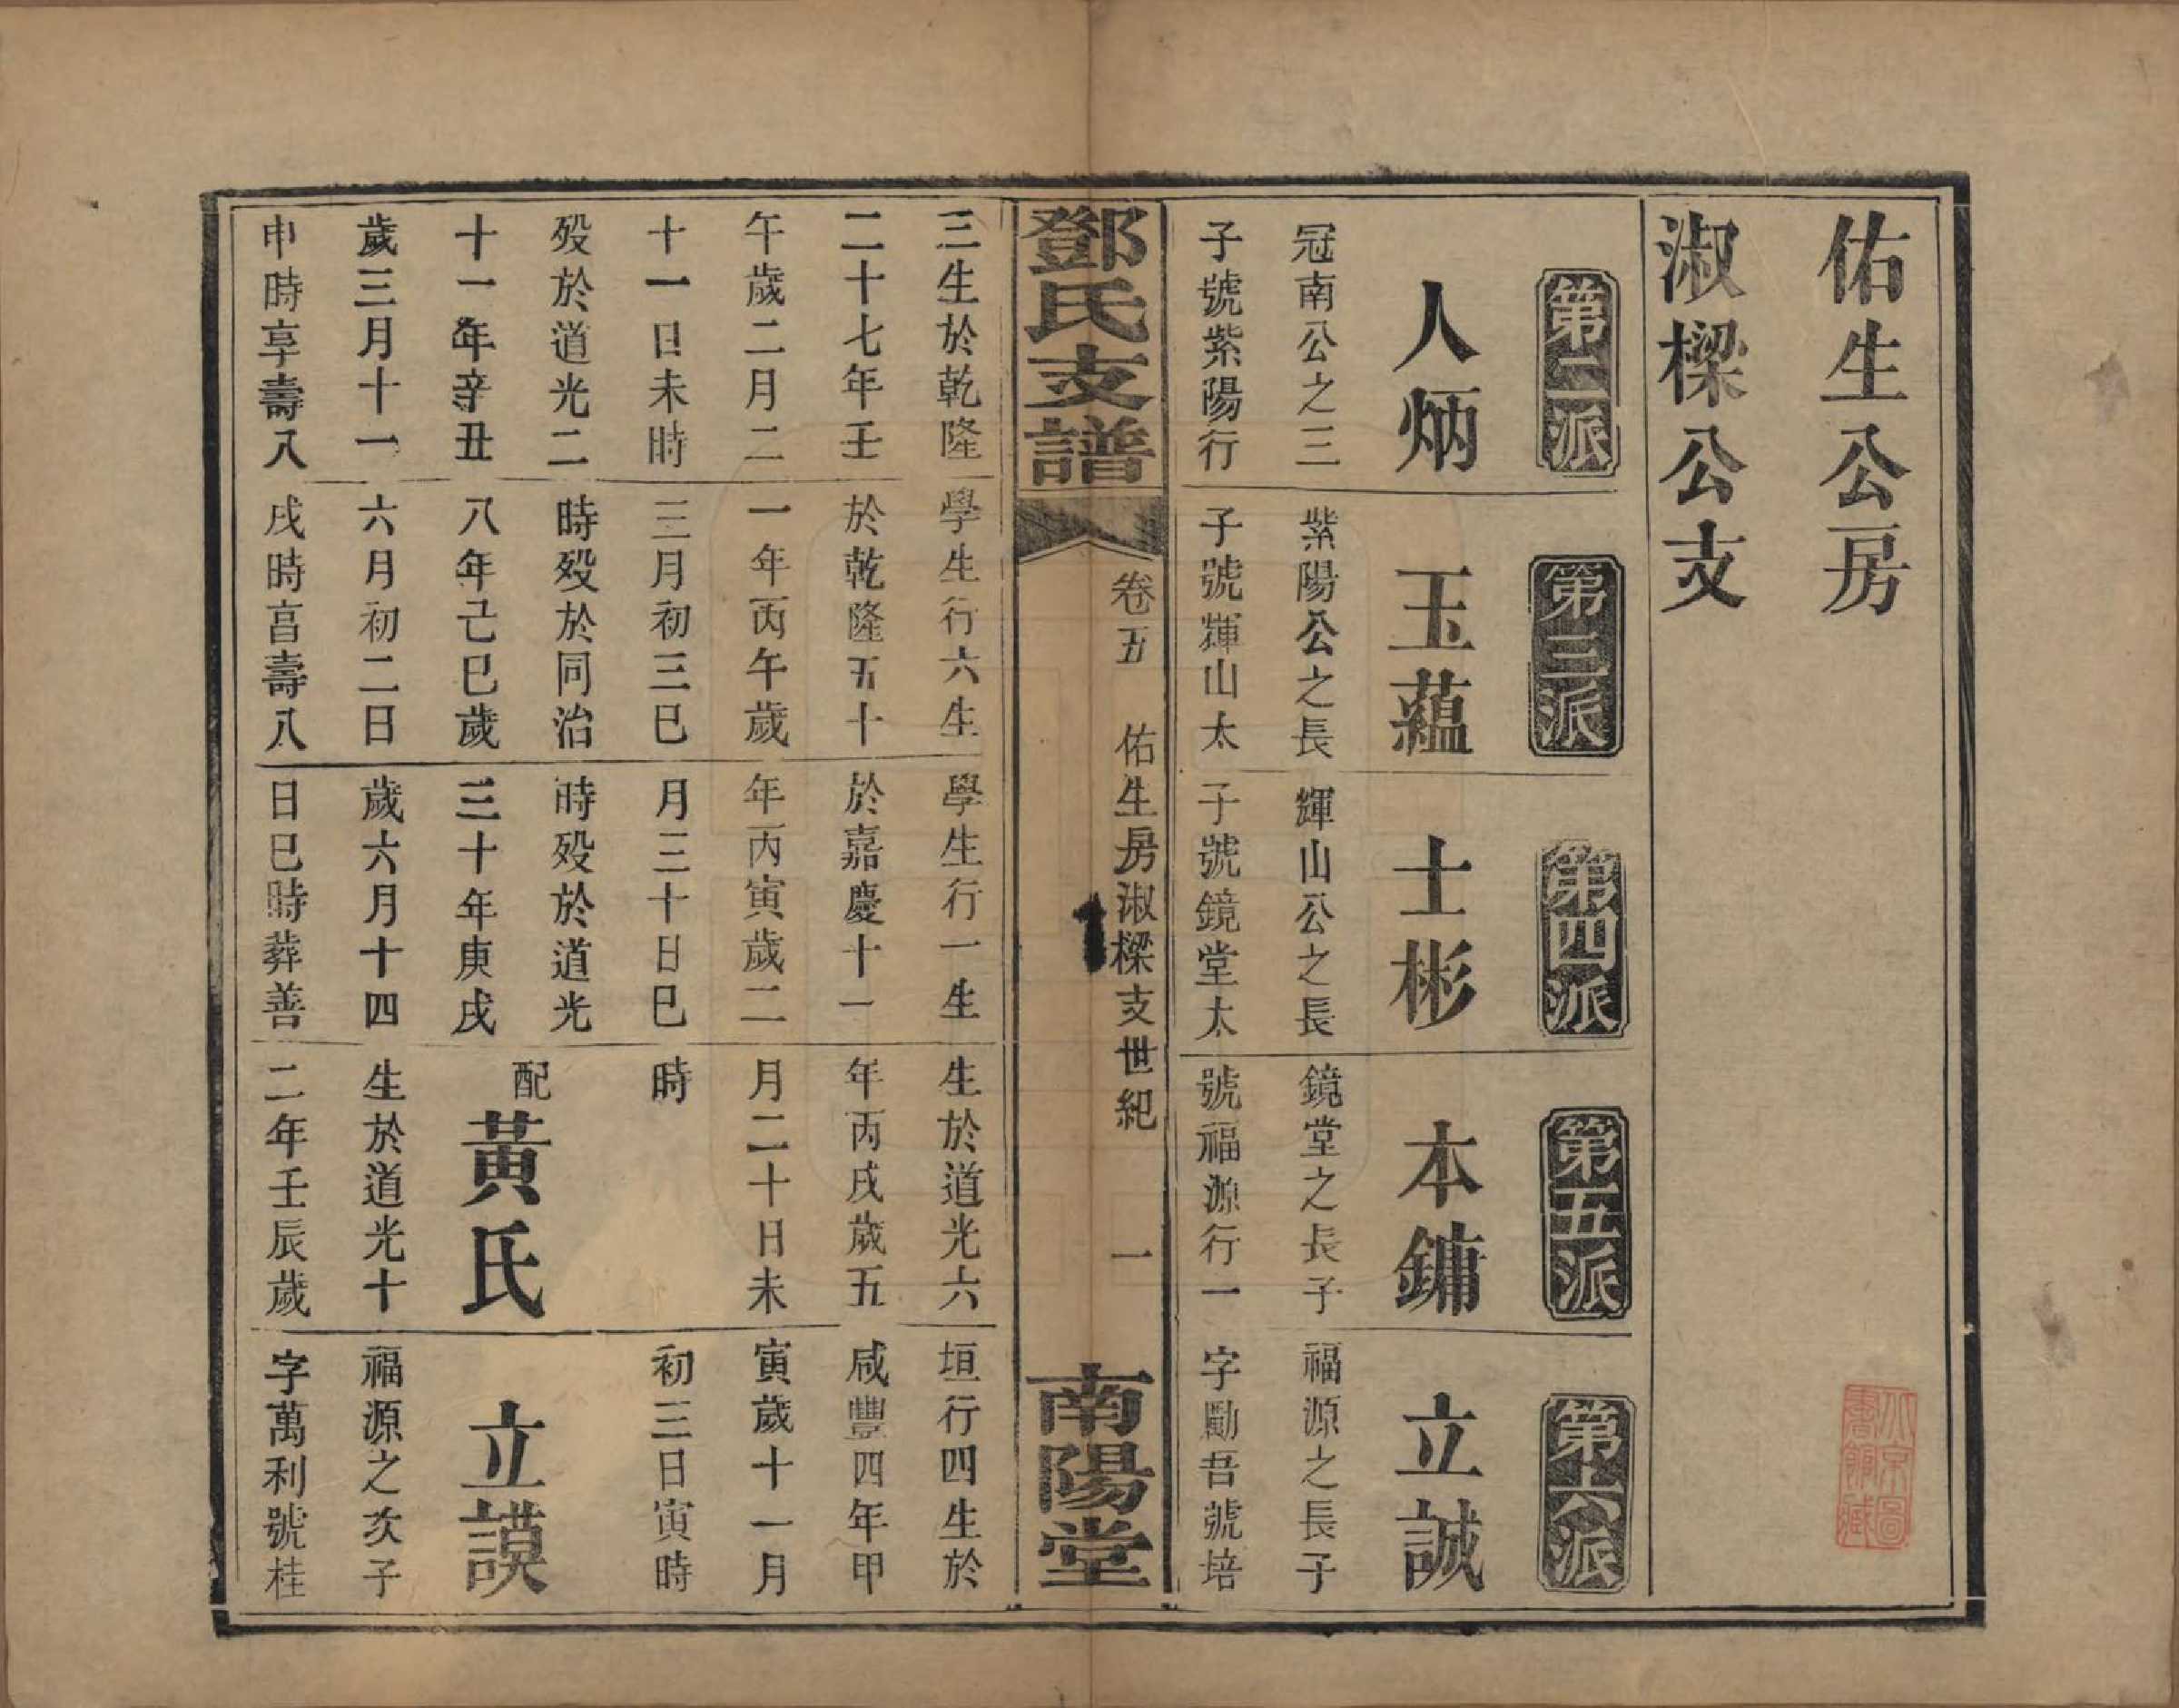 佑生公房
淑樑公支
第二派
人炳
冠南公之三
子號紫陽行
三生於乾隆
二十七年壬
午歲二月二
十一日未時
殁於道光二
十一年辛丑
歲三月十一
申時享壽八
第三派
玉蘊
紫陽公之長
子號輝山太
學生行六生
於乾隆五十
一年丙午歲
三月初三巳
時殁於同治
八年己巳歲
六月初二日
戌時亯壽八
第四派
士彬
輝山公之長
子號鏡堂太
學生行一生
於嘉慶十一
年丙寅歲二
月三十日巳
時殁於道光
三十年庚戌
歲六月十四
日巳時葬善
第五派
本鏞
鏡堂之長子
號福源行一
生於道光六
年丙戌歲五
月二十日未
時
配黃氏
生於道光十
二年壬辰歲
第六派
立誠
福源之長子
字勵吾號培
垣行四生於
咸豐四年甲
寅歲十一月
初三日寅時
立謨
福源之次子
字萬利號桂
鄧氏支譜
卷五 佑生房淑樑支世紀 一
南陽堂
北京圖
書館藏